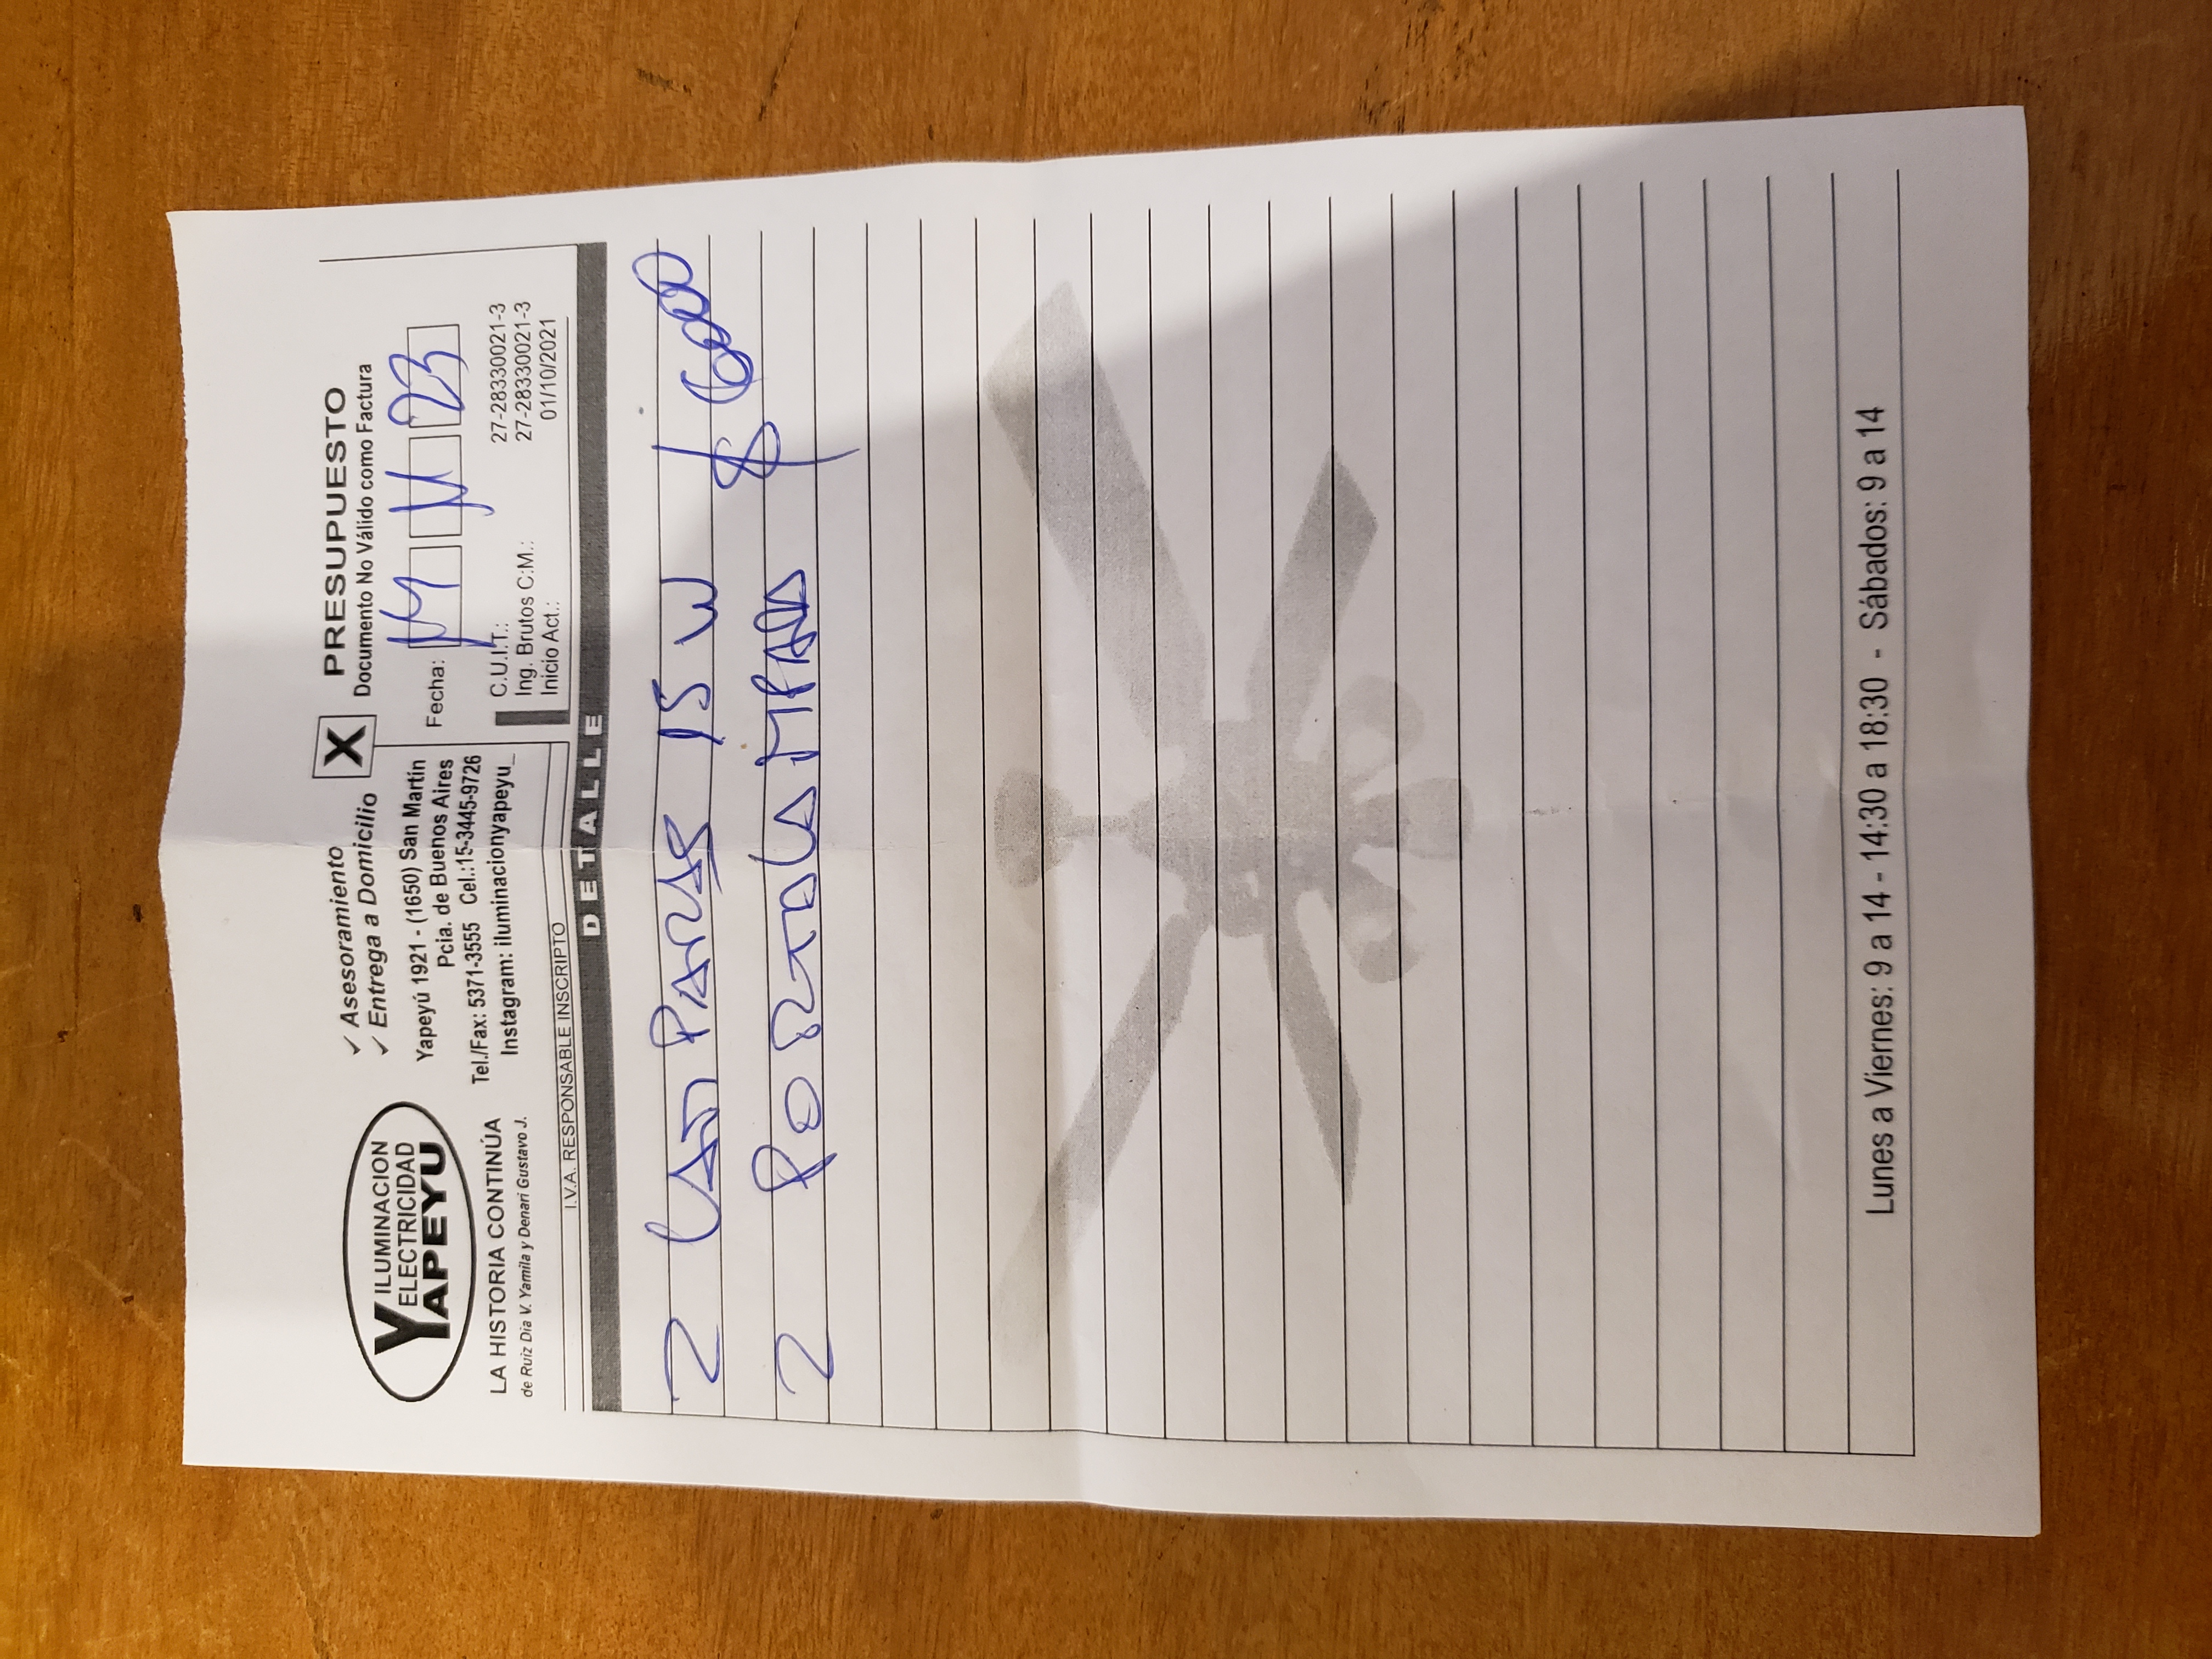 Y ILUMINACION
ELECTRICIDAD
YAPEYU
LA HISTORIA CONTINÚA
de Ruiz Dia V. Yamila y Denari Gustavo J.
✓ Asesoramiento
✓ Entrega a Domicilio
Yapeyú 1921 - (1650) San Martín
Pcia. de Buenos Aires
Tel./Fax: 5371-3555 Cel.:15-3445-9726
Instagram: iluminacionyapeyu_
I.V.A. RESPONSABLE INSCRIPTO
X
PRESUPUESTO
Documento No Válido como Factura
Fecha: 14 11 23
C.U.I.T.: 27-28330021-3
Ing. Brutos C:M.: 27-28330021-3
Inicio Act.: 01/10/2021
DETALLE
2 LAMPARAS 15 W $ 6000
2 PORTALAMPARA
Lunes a Viernes: 9 a 14 - 14:30 a 18:30 - Sábados: 9 a 14